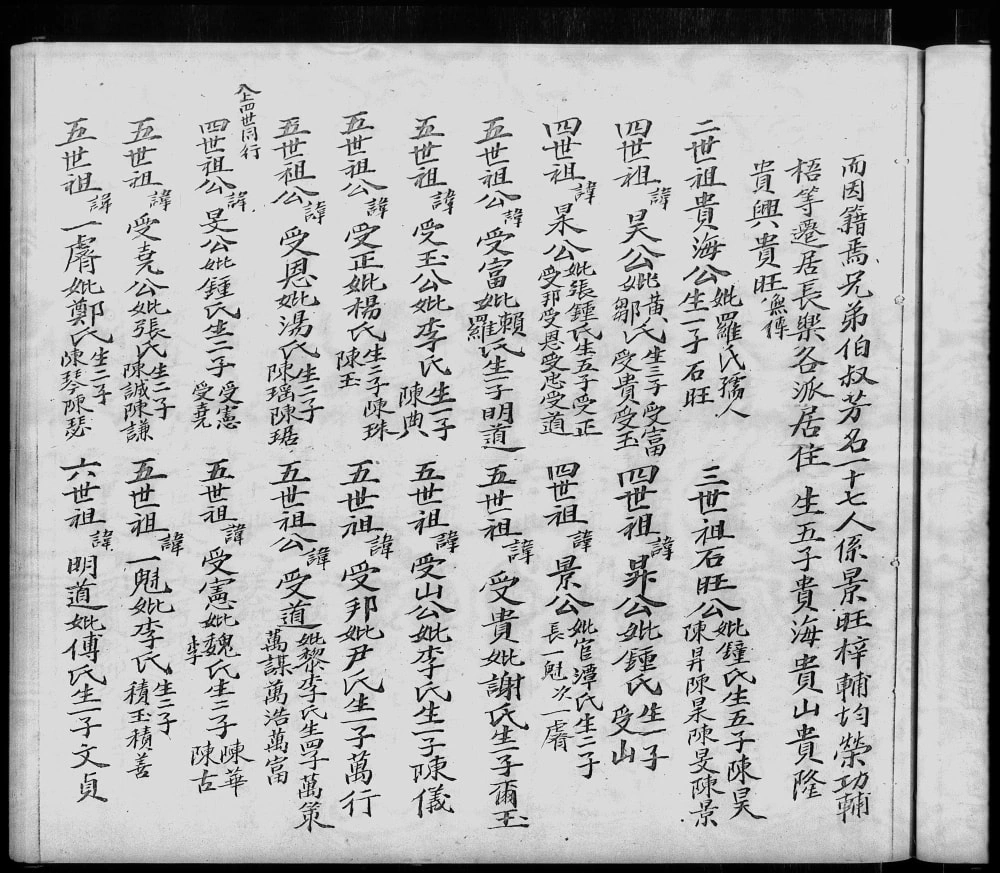 而因籍焉兄弟伯叔芳名一十七人係景旺梓輔均榮功輔
梧等遷居長樂各派居住 生五子貴海貴山貴隆
貴興貴旺無傳
二世祖貴海公妣羅氏孺人生一子石旺
三世祖石旺公妣鍾氏生五子陳昊陳昇陳杲陳旻陳景
四世祖諱昊公妣黄鄒氏生三子受富受貴受玉
四世祖諱昇公妣鍾氏生一子受山
四世祖諱杲公妣張鍾氏生五子受正受邦受恩受忠受道
四世祖諱景公妣官潭氏生二子長一魁次一膚
五世祖公諱受富妣賴羅氏生一子明道
五世祖諱受貴妣謝氏生一子爾玉
五世祖諱受玉公妣李氏生一子陳典
五世祖諱受山公妣李氏生一子陳儀
五世祖公諱受正妣楊氏生二子陳珠陳玉
五世祖諱受邦妣尹氏生一子萬行
五世祖公諱受恩妣湯氏生二子陳瑶陳琚
五世祖公諱受道妣黎李氏生四子萬策萬謀萬浩萬富
上四世同行
四世祖公諱旻公妣鍾氏生二子受憲受堯
五世祖諱受憲妣魏李氏生二子陳華陳古
五世祖諱受堯公妣張氏生二子陳誠陳謙
五世祖諱一魁妣李氏生二子積玉積善
五世祖諱一膚妣鄭氏生二子陳琴陳瑟
六世祖諱明道妣傅氏生一子文貞